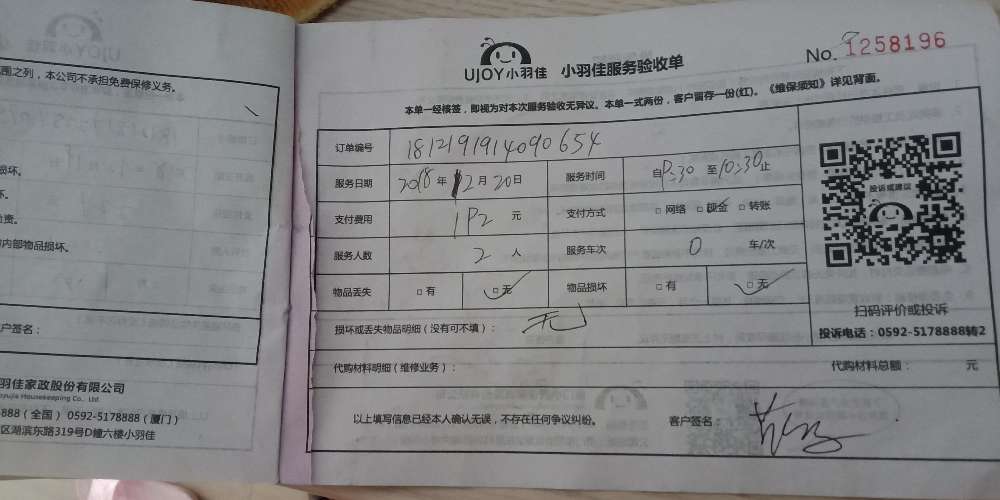 围之列，本公司不承担免费保修义务。
损坏。
坏。
责。
内部物品损坏。
户签名：
羽佳家政股份有限公司
oyujia Housekeeping Co., Ltd
-888（全国） 0592-5178888（厦门）
区湖滨东路319号D幢六楼小羽佳
UJOY小羽佳 小羽佳服务验收单
No. 1258196
本单一经核签，即视为对本次服务验收无异议。本单一式两份，客户留存一份(红)。《维保须知》详见背面。
订单编号 181219191409０654
服务日期 2018年12月20日 服务时间 自 :30 至10:30止
支付费用 元 支付方式 □网络 □现金 □转账
服务人数 2 人 服务车次 0 车/次
物品丢失 □有 □无 物品损坏 □有 □无
投诉或建议
损坏或丢失物品明细（没有可不填）： 无
扫码评价或投诉
投诉电话：0592-5178888转2
代购材料明细（维修业务）： 代购材料总额： 元
以上填写信息已经本人确认无误，不存在任何争议纠纷。 客户签名：